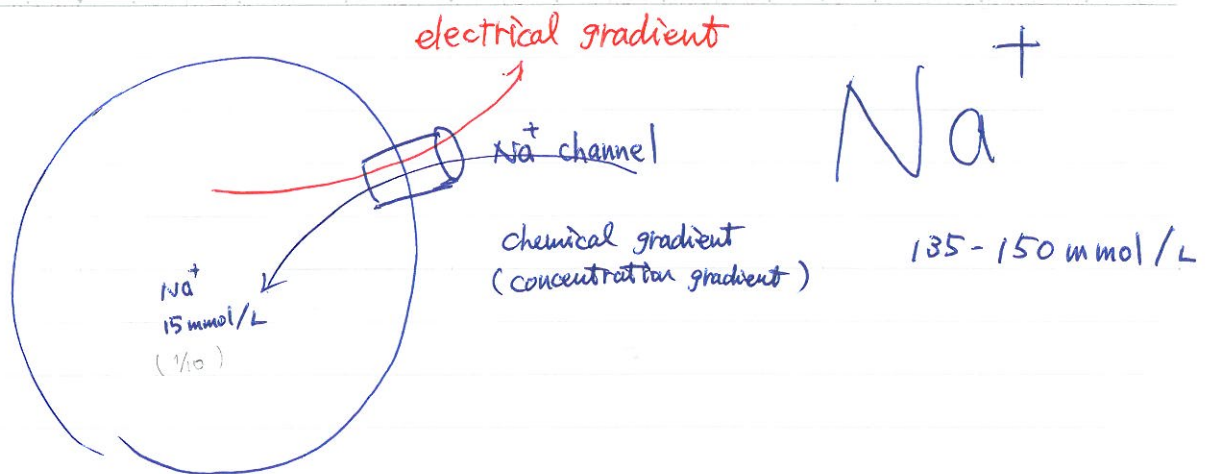 electrical gradient
Na+
Na+ channel
chemical gradient
(concentration gradient)
135-150 mmol/L
Na+
15 mmol/L
(1/10)